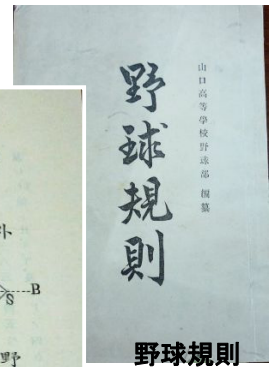 山口高等學校野球部 編纂
野球規則
外
S
B
野
野球規則